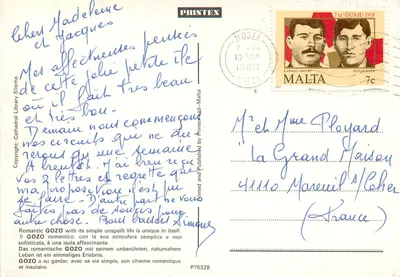 PRISTEX
Chers Madeleine
et Jacques
Mes affectueuses pensées
de cette jolie petite île
où il fait très beau
et très bon.
Demain nous commençons
nos circuits que ne du-
reront qu'une semaine
A bientôt. J'ai bien reçu
vos 2 lettres et regrette que
ma proposition n'est pu
se faire. D'autre part ne vous
faites pas de soucis pour
autre chose. Bons baisers Simone
Copyright: Cathedral Library Sliema
Printed and Published by Pristex Malta
Romantic GOZO with its simple unspoilt life is unique in itself.
Il GOZO romantico, con la sua atmosfera semplice e non
sofisticata, è una isola affascinante.
Das romantische GOZO mit seinem unberührten, naturnahem
Leben ist ein einmaliges Erlebnis.
GOZO a su garder, avec sa vie simple, son charme romantique
et insulaire.
P7532B
7 ta' ĠUNJU 1919
MALTA
7c
Mr et Mme Ployard
La Grand Maison
41110 Mareuil s/Cher
(France)